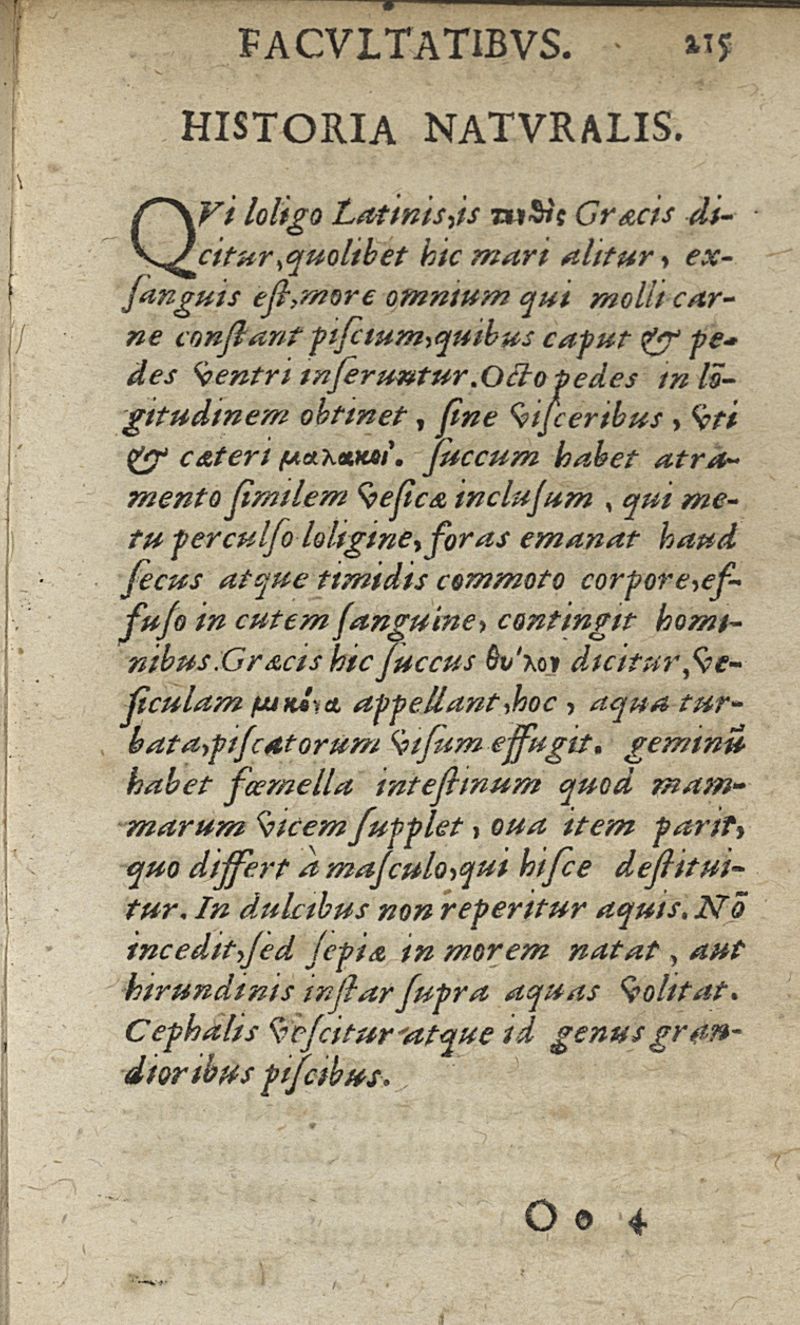 FACVLTATIBVS. 215
HISTORIA NATVRALIS.
QVi loligo Latinis, is τευθὶς Græcis di-
citur, quolibet hic mari alitur, ex-
ſanguis eſt, more omnium qui molli car-
ne conſtant piſcium, quibus caput & pe-
des ventri inſeruntur. Octo pedes in lō-
gitudinem obtinet, ſine viſceribus, vti
& cæteri μαλακοί. ſuccum habet atra-
mento ſimilem veſicæ incluſum, qui me-
tu perculſo loligine, foras emanat haud
ſecus atque timidis commoto corpore, ef-
fuſo in cutem ſanguine, contingit homi-
nibus. Græcis hic ſuccus θύλον dicitur, ve-
ſiculam μικῶνα appellant, hoc, aqua tur-
bata, piſcatorum viſum effugit. geminū
habet fœmella inteſtinum quod mam-
marum vicem ſupplet, oua item parit,
quo differt à maſculo, qui hiſce deſtitui-
tur. In dulcibus non reperitur aquis. Nō
incedit, ſed ſepiæ in morem natat, aut
hirundinis inſtar ſupra aquas volitat.
Cephalis veſcitur atque id genus gran-
dioribus piſcibus.
O o 4